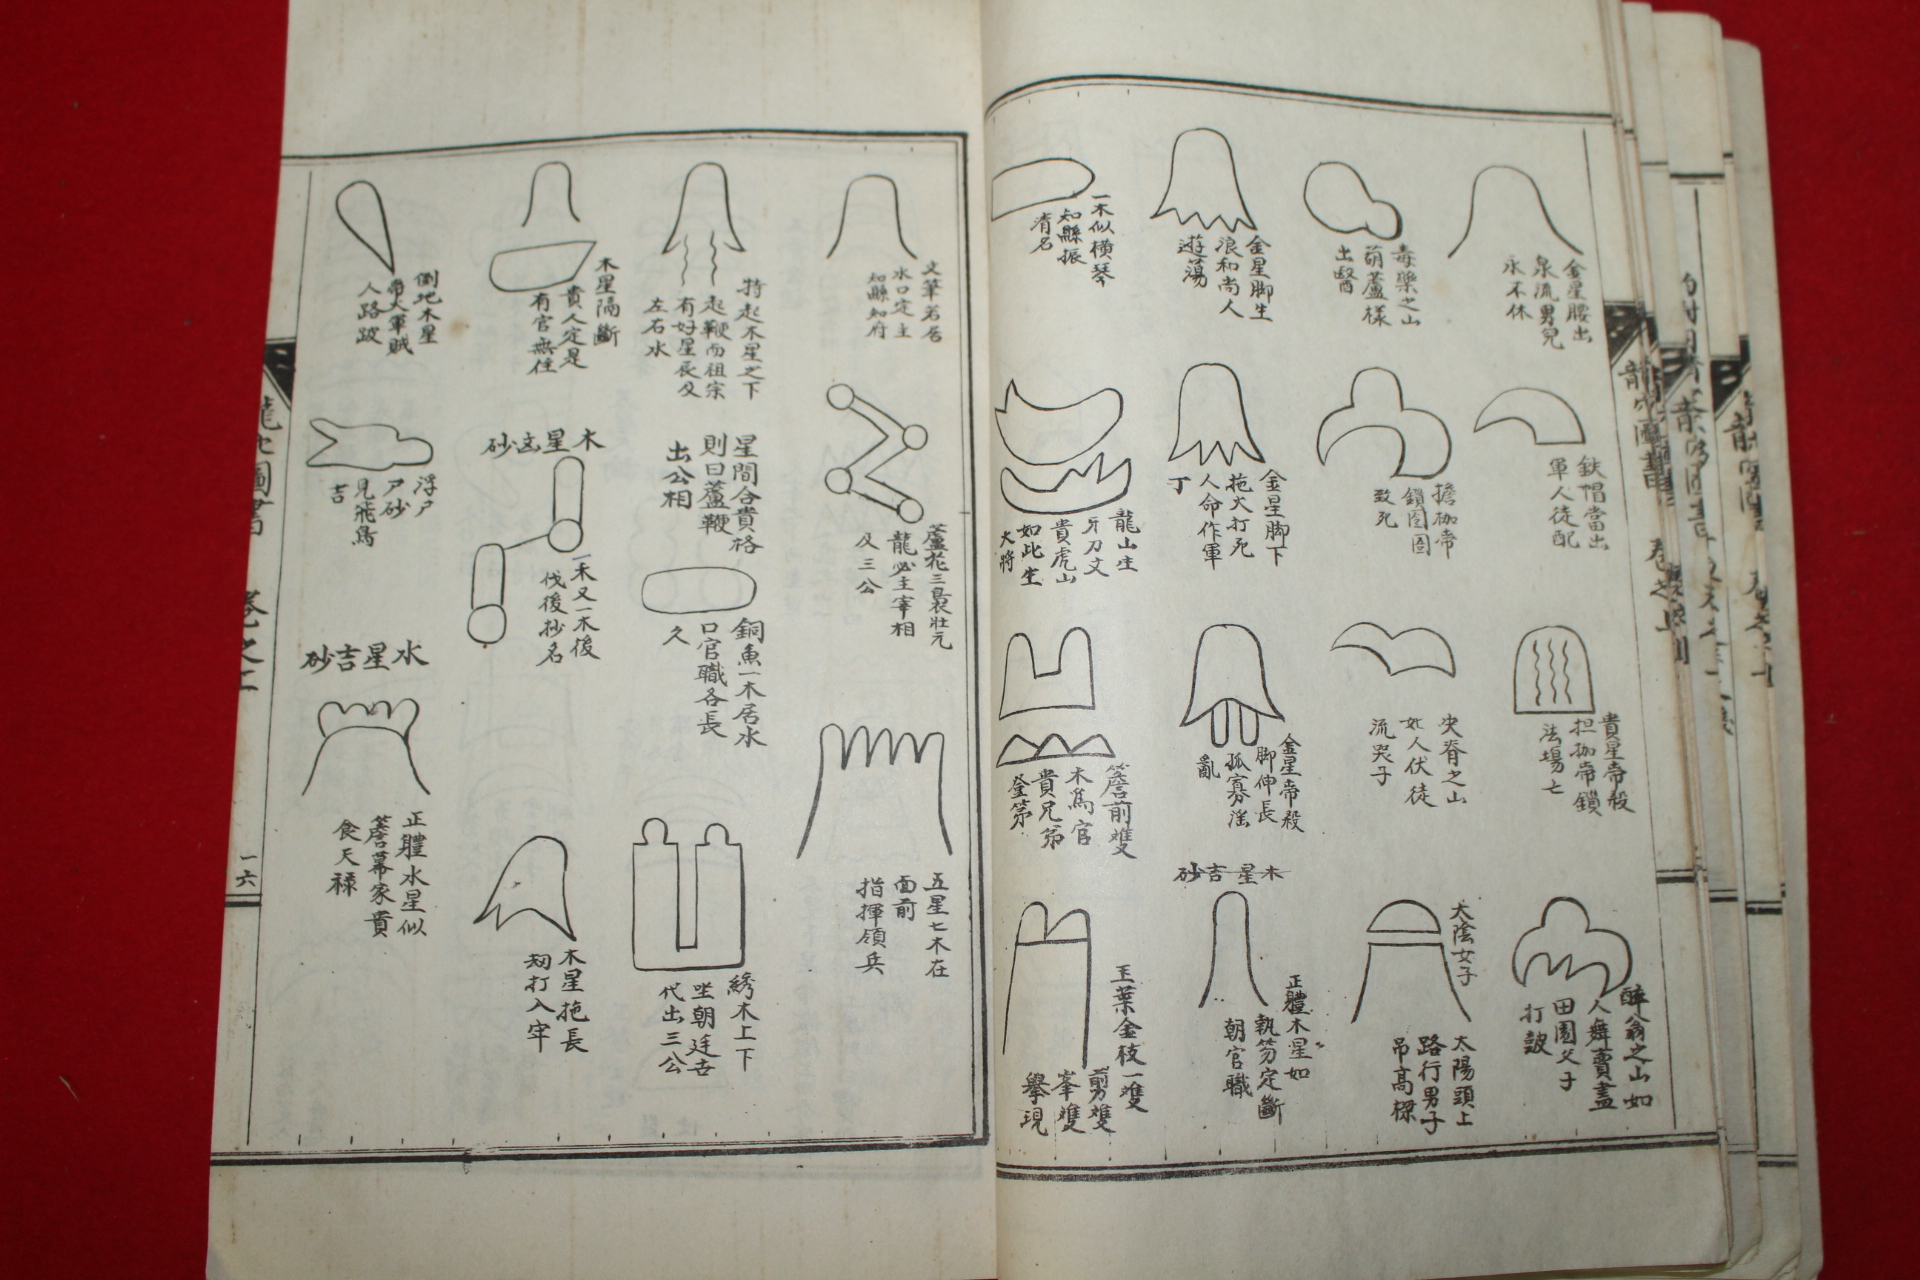 金星腰出
泉流男兒
永不休
鉄帽當出
軍人徒配
貴星帝殺
担枷帝鎖
法場亡
醉翁之山如
人舞賣盡
田園父子
打皷
毒藥之山
葫蘆樣
出醫
擔枷帝
鎖囹圄
致死
夬脊之山
女人伏徒
流哭子
太陰女子
太陽頭上
路行男子
吊高樑
金星脚生
浪和尚人
遊蕩
金星脚下
拖火打死
人命作軍
丁
金星帝殺
脚伸長
孤寡淫
亂
木星吉砂
正體木星如
執笏定斷
朝官職
一木似橫琴
知縣振
清名
龍山生
牙刀文
貴虎山
如此生
大將
簷前雙
木爲官
貴兄弟
登第
玉葉金枝一雙
剪雙
峯雙
舉現
文筆若居
水口定主
知縣知府
蘆花三裊壮元
龍必主宰相
及三公
五星七木在
面前
指揮領兵
特起木星之下
起鞭而祖宗
有好星辰及
左右水
星間合貴格
則曰蘆鞭
出公相
銅魚一木居水
口官職各長
久
綉木上下
坐朝廷古
代出三公
木星隔斷
貴人定是
有官無任
木星凶砂
一木又一木後
伐後抄名
木星拖長
刼打入牢
倒地木星
帝火軍賊
人路跛
浮尸
尸砂
見飛鳥
吉
水星吉砂
正體水星似
簷幕家貴
食天祿
一六